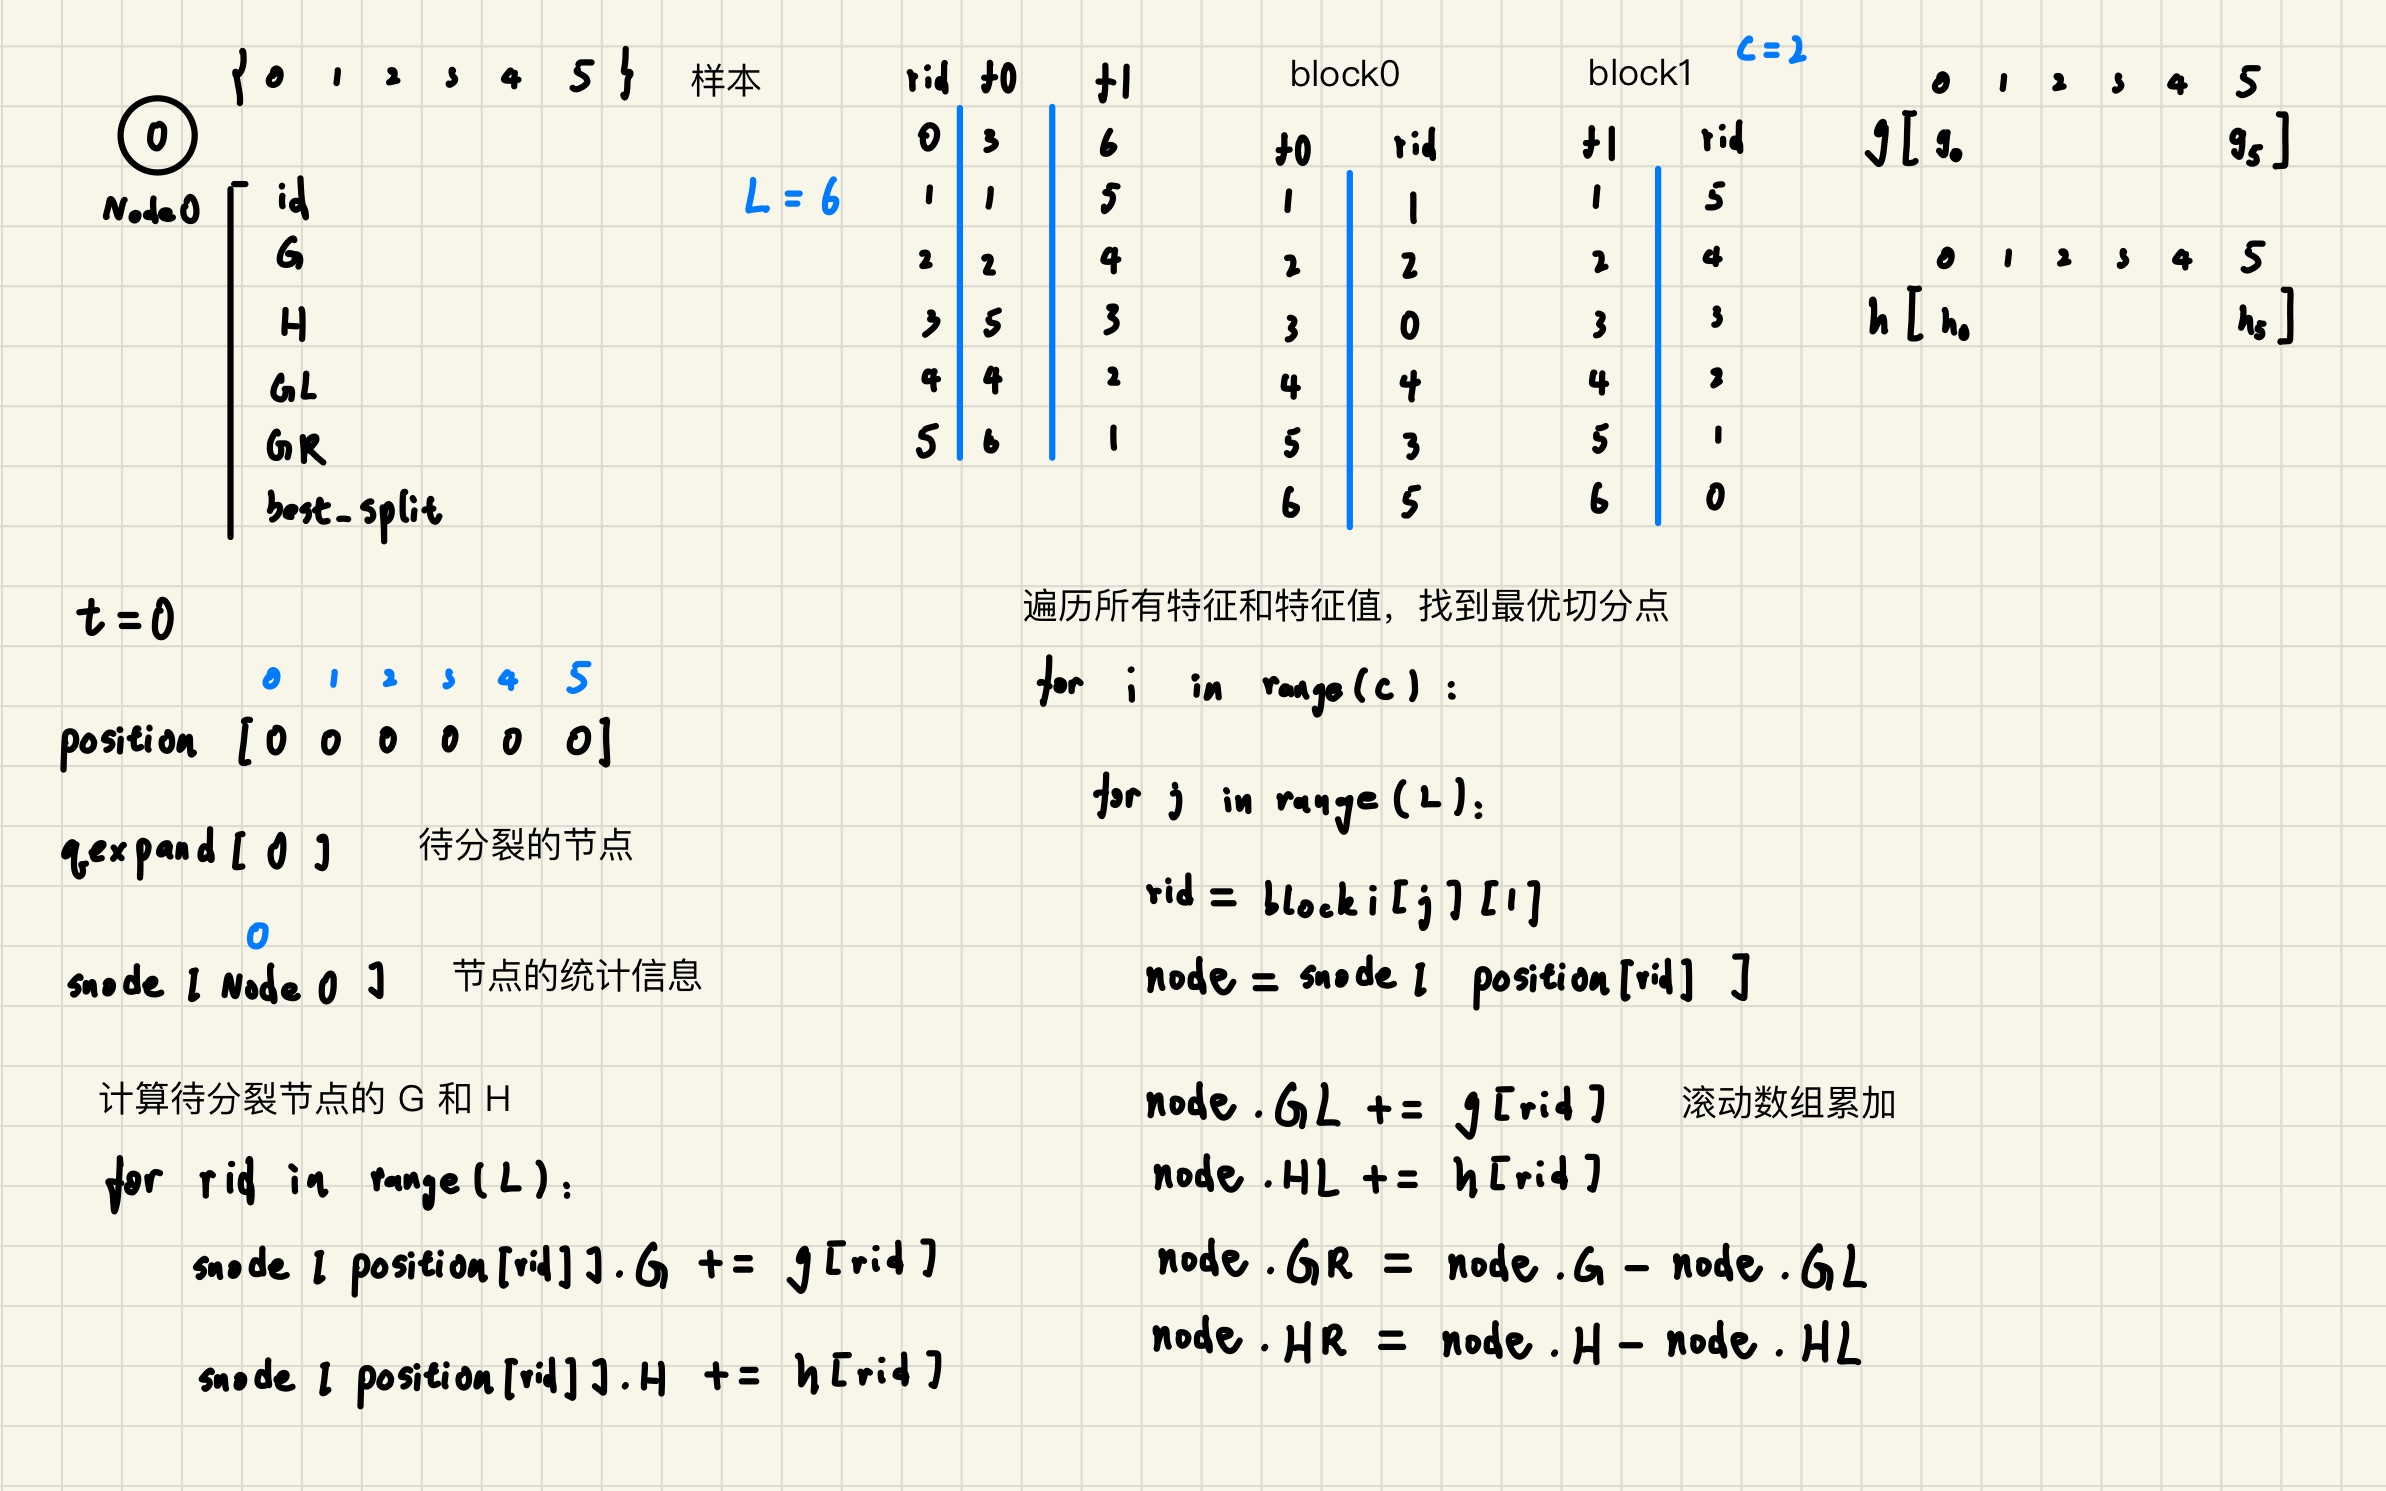 { 0 1 2 3 4 5 } 样本
0
Node0
id
G
H
GL
GR
best_split
L = 6
rid f0 f1
0 3 6
1 1 5
2 2 4
3 5 3
4 4 2
5 6 1
block0
f0 rid
1 1
2 2
3 0
4 4
5 3
6 5
block1
c=2
f1 rid
1 5
2 4
3 3
4 2
5 1
6 0
0 1 2 3 4 5
g [ g0 g5 ]
0 1 2 3 4 5
h [ h0 h5 ]
t = 0
0 1 2 3 4 5
position [ 0 0 0 0 0 0 ]
qexpand [ 0 ] 待分裂的节点
0
snode [ Node 0 ] 节点的统计信息
计算待分裂节点的 G 和 H
for rid in range(L):
snode [ position[rid] ].G += g[rid]
snode [ position[rid] ].H += h[rid]
遍历所有特征和特征值，找到最优切分点
for i in range(c):
for j in range(L):
rid = blocki[j][1]
node = snode [ position[rid] ]
node.GL += g[rid] 滚动数组累加
node.HL += h[rid]
node.GR = node.G - node.GL
node.HR = node.H - node.HL